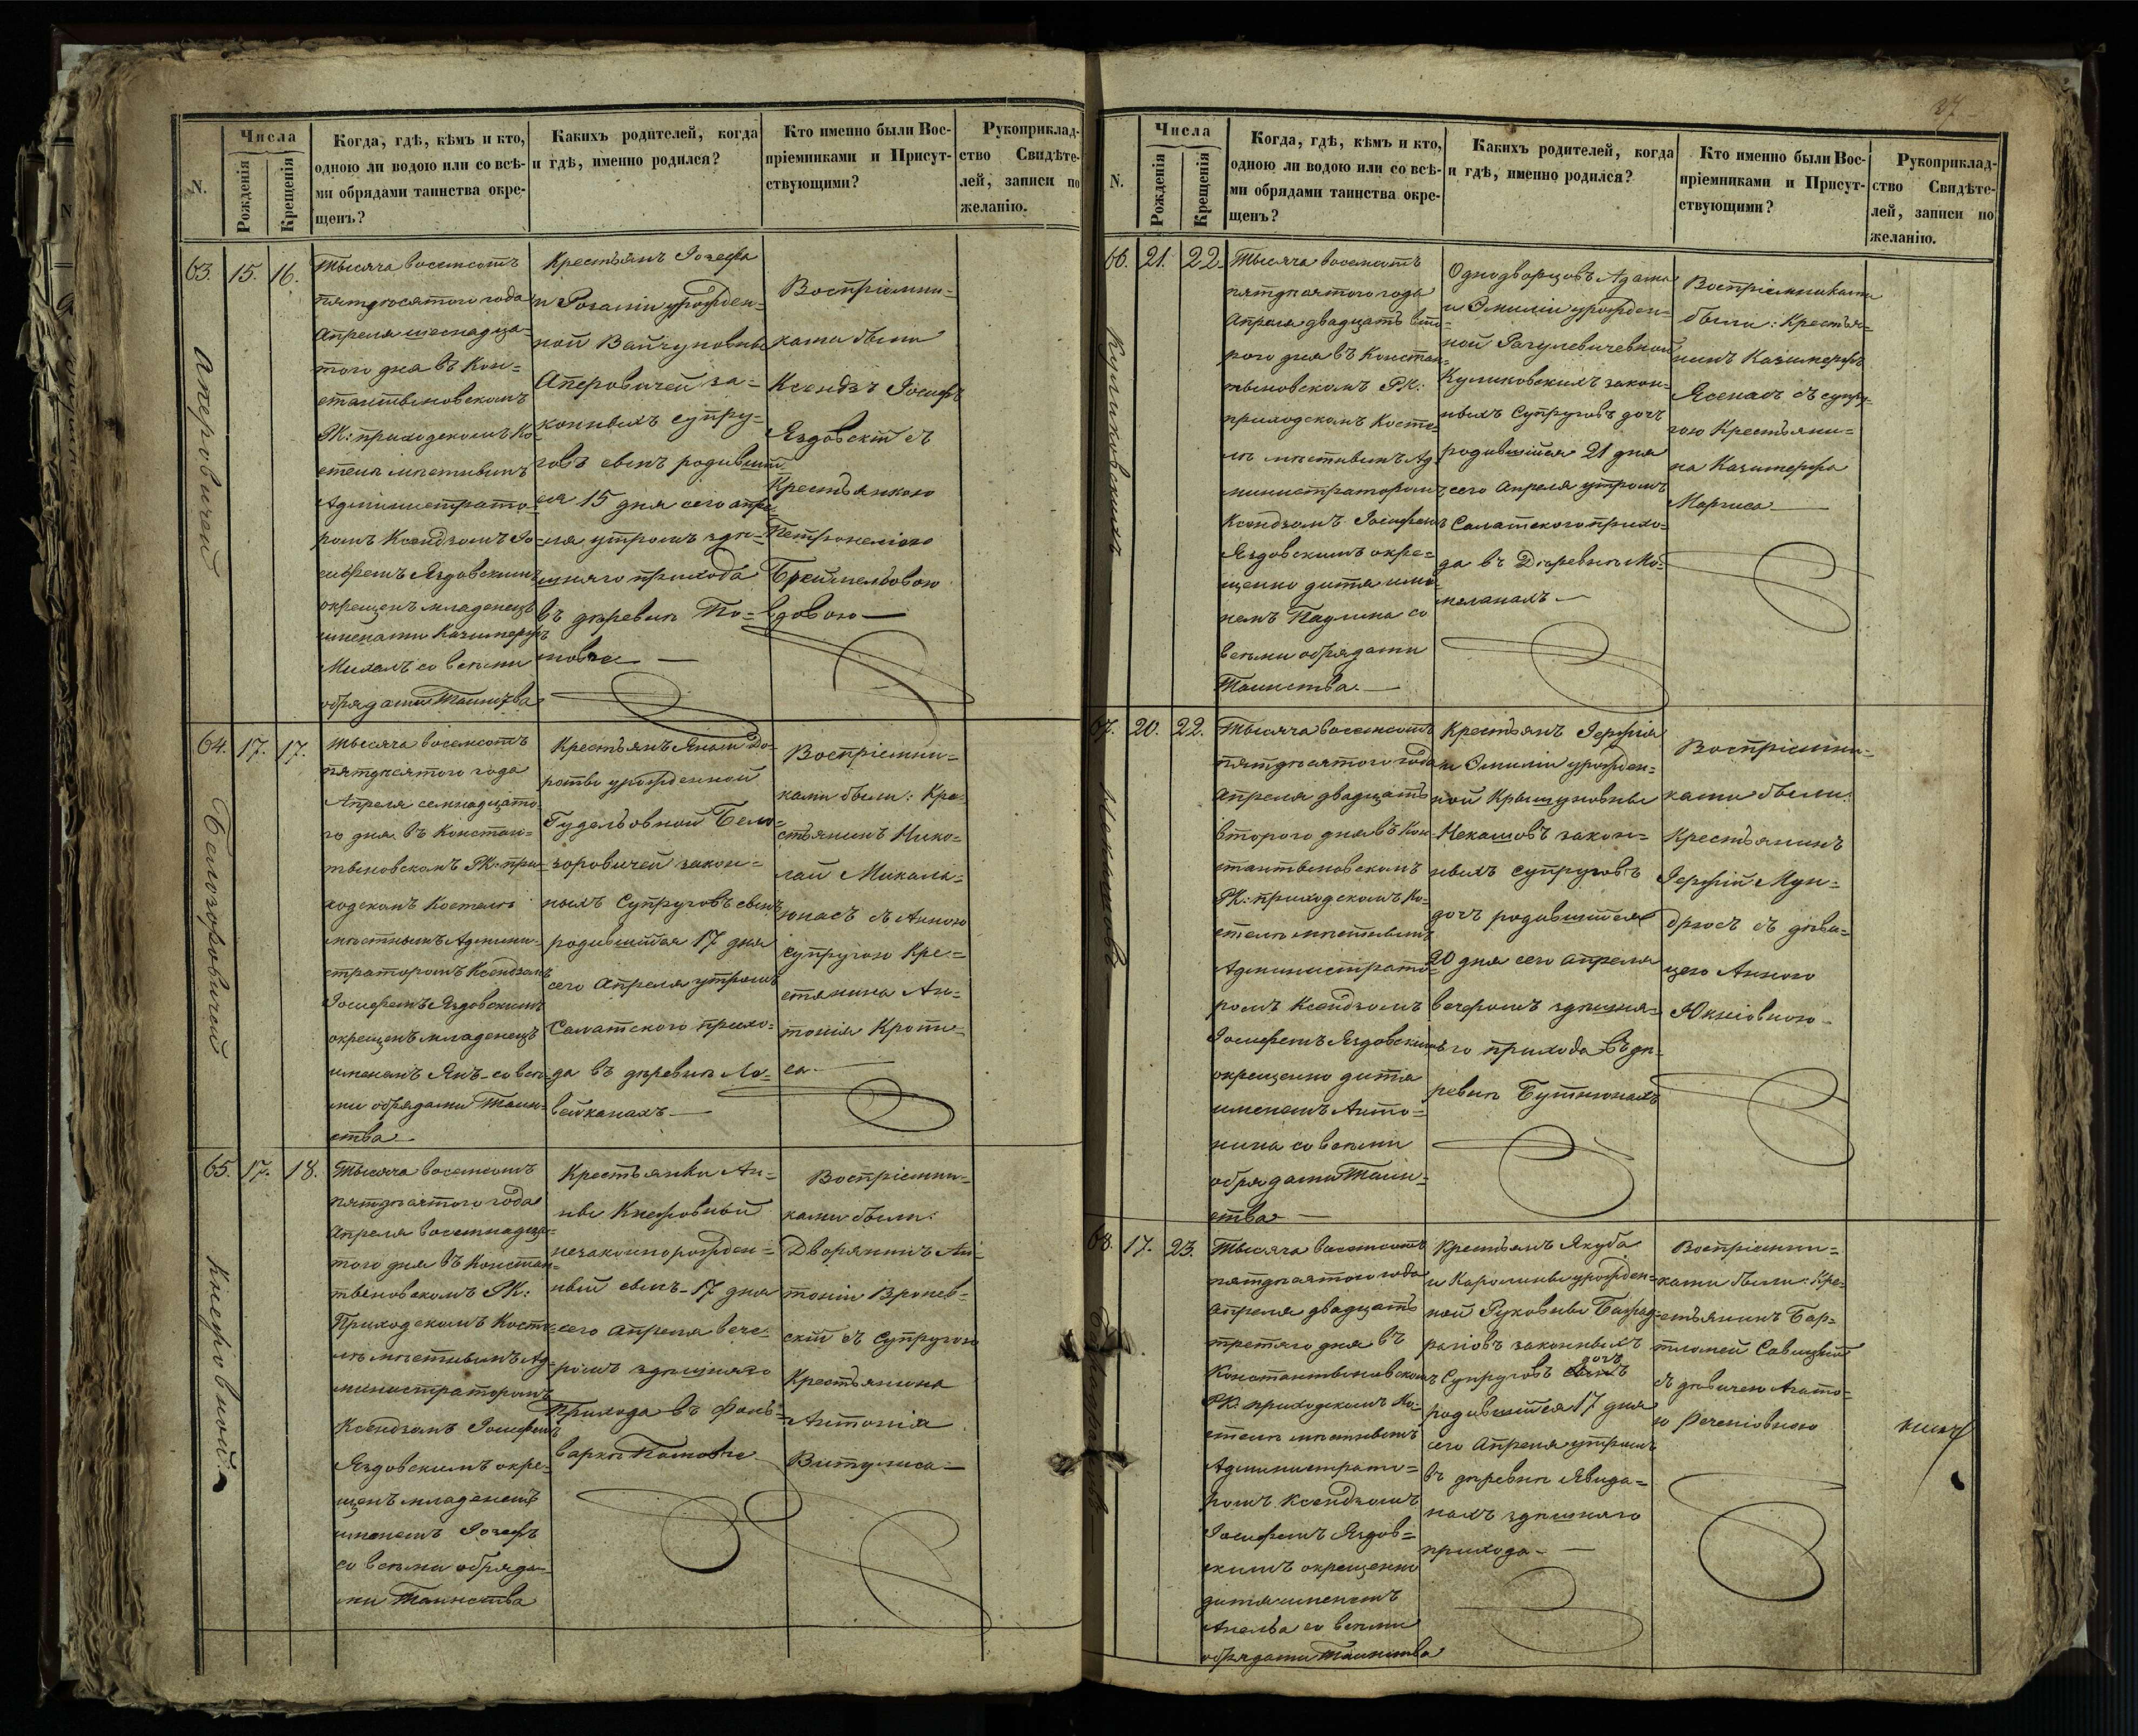 N.
Числа
Рожденія
Крещенія
Когда, гдѣ, кѣмъ и кто,
одною ли водою или со всѣ-
ми обрядами таинства окре-
щенъ?
Какихъ родителей, когда
и гдѣ, именно родился?
Кто именно были Вос-
пріемниками и Присут-
ствующими?
Рукоприклад-
ство Свидѣте-
лей, записи по
желанію.
63.
15.
16.
Аперовичей
Тысяча восемсотъ
пятдѣсятого года
Апреля шеснадца-
того дня въ Кон=
стантыновскомъ
РК: приходскомъ Ко
стелѣ мѣстнымъ
Администрато-
ромъ Ксендзомъ Іо=
сифемъ Яздовскимъ
окрещенъ младенецъ
именами Казимеръ
Михалъ со всѣми
обрядами Таинства
Крестьянъ Іозефа
и Розаліи урожден=
ной Вайчуновны
Аперовичей за=
конныхъ супру=
говъ сынъ родивший
ся 15 дня сего апре
ля утромъ здѣ=
шняго прихода
въ деревни По=
Воспріемни=
ками были
Ксендзъ Іосифъ
Яздовскій съ
Крестьянкою
Петронелією
вдовою
64.
17.
17.
Белозоровичей
Тысяча восемсотъ
пятдѣсятого года
Апреля семнадцато
го дня въ Констан=
тыновскомъ РК: при=
ходскомъ Костелѣ
мѣстнымъ Админи=
стратоpомъ Ксендзомъ
Іосифемъ Яздовскимъ
окрещенъ младенецъ
именемъ Янъ со всѣ=
ми обрядами Таин=
ства
Крестьянъ Яна и До=
роты урожденной
Гудельовной Бело=
зоровичей закон=
ныхъ Супруговъ сынъ
родившийся 17 дня
сего Апреля утромъ
Салатского прихо=
да въ деревни Ло=
вейканахъ
Воспріемни=
ками были: Кре=
стьянинъ Нико=
лай Микаль=
юнасъ съ Анною
супругою Кре=
стянина Ан=
тонія Кропи=
са
65.
17.
18.
Кнеровной
Тысяча восемсотъ
пятдѣсятого года
Апреля восемнадца=
того дня въ Констан=
тыновскомъ РК:
Приходскомъ Косте=
лѣ мѣстнымъ Ад=
министраторомъ
Ксендзомъ Іосифемъ
Яздовскимъ окре=
щенъ младенецъ
именемъ Іозефъ
со всѣми обряда=
ми Таинства
Крестьянки Ан=
ны Кнеровной
незаконнорожден=
ный сынъ 17 дня
сего Апреля вече=
ромъ здѣшняго
Прихода въ фоль=
Воспріемни=
ками были:
Дворянинъ Ан=
тоній Вроблев=
скій съ Супругою
Крестьянина
Антонія
Витулиса
37
N.
Числа
Рожденія
Крещенія
Когда, гдѣ, кѣмъ и кто,
одною ли водою или со всѣ-
ми обрядами таинства окре-
щенъ?
Какихъ родителей, когда
и гдѣ, именно родился?
Кто именно были Вос-
пріемниками и Присут-
ствующими?
Рукоприклад-
ство Свидѣте-
лей, записи по
желанію.
66.
21.
22.
Куликовскихъ
Тысяча восемсотъ
пятдѣсятого года
Апреля двадцать вто=
рого дня въ Констан=
тыновскомъ РК:
приходскомъ Косте=
лѣ мѣстнымъ Ад=
министраторомъ
Ксендзомъ Іосифемъ
Яздовскимъ окре=
щенно дитя име
немъ Паулина со
всѣми обрядами
Таинства.
Однодворцовъ Адама
и Эмиліи урожден=
ной Рагулевичевной
Куликовскихъ закон=
ныхъ Супруговъ дочъ
родившаяся 21 дня
сего Апреля утромъ
Салатского прихо=
да въ Деревни Мо=
Воспріемниками
были: Крестья=
нинъ Казимеръ
Ясенасъ съ супру=
гою Крестьяни=
на Казимера
67.
20.
22.
Некашовъ
Тысяча восемсотъ
пятдѣсятого года
Апреля двадцать
второго дня въ Кон=
стантыновскомъ
РК: приходскомъ Ко=
стелѣ мѣстнымъ
Администрато=
ромъ Ксендзомъ
Іосифемъ Яздовскимъ
окрещенно дитя
именемъ Анто=
нина со всѣми
обрядами Таин=
ства
Крестьянъ Іержія
и Эмиліи урожден=
ной Крышуновны
Некашовъ закон=
ныхъ супруговъ
дочъ родившаяся
20 дня сего Апреля
вечеромъ здѣшня=
го прихода въ де=
ревни Бутнюнахъ
Воспріемни=
ками были:
Крестьянинъ
Іержій Мун=
дрюсъ съ дѣви=
цею Анною
Юкніовною
68.
17.
23.
Тысяча восемсотъ
пятдѣсятого года
Апреля двадцать
третяго дня въ
Константыновскомъ
РК: приходскомъ Ко=
стелѣ мѣстнымъ
Администрато=
ромъ Ксендзомъ
Іосифемъ Яздов=
скимъ окрещенно
дитя именемъ
Анеля со всѣми
обрядами Таинства
Крестьянъ Якуба
и Каролины урожден=
ной Руковны
законныхъ
Супруговъ дочъ
родившаяся 17 дня
сего Апреля утромъ
въ деревни Явида=
нахъ здѣшняго
прихода
Воспріемни=
ками были: Кре=
стьянинъ Бар=
тломей Савицкій
съ дѣвицею Агато=
ю